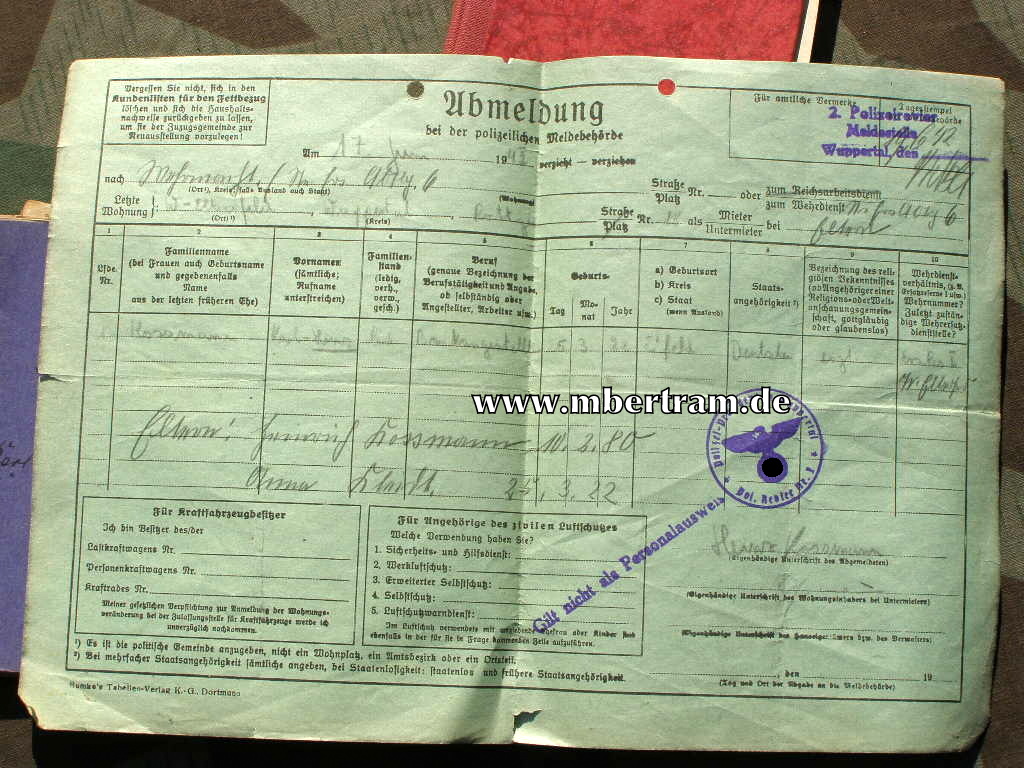 Vergessen Sie nicht, sich in den
Kundenlisten für den Fettbezug
löschen und sich die Haushalts-
nachweise zurückgeben zu lassen,
um sie der Zuzugsgemeinde zur
Neuausstellung vorzulegen!
Abmeldung
bei der polizeilichen Meldebehörde
Am 17 Juni 1942 verzieht – verziehen
Für amtliche Vermerke
Tagesstempel
2. Polizeirevier
Meldestelle
Wuppertal, den
nach
(Ort¹), Kreis, falls Ausland auch Staat)
(Wohnung)
Straße
Platz Nr. oder zum Reichsarbeitsdienst
zum Wehrdienst
Letzte
Wohnung
(Ort¹)
(Kreis)
Straße
Platz Nr. als Mieter
Untermieter bei Eltern
1 2 3 4 5 6 7 8 9 10
Lfde.
Nr.
Familienname
(bei Frauen auch Geburtsname
und gegebenenfalls
Name
aus der letzten früheren Ehe)
Vornamen
(sämtliche;
Rufname
unterstreichen)
Familien-
stand
(ledig,
verh.,
verw.,
gesch.)
Beruf
(genaue Bezeichnung der
Berufstätigkeit und Angabe,
ob selbständig oder
Angestellter, Arbeiter usw.)
Geburts-
Tag Mo-
nat Jahr
a) Geburtsort
b) Kreis
c) Staat
(wenn Ausland)
Staats-
angehörigkeit ²)
Bezeichnung des reli-
giösen Bekenntnisses
(ob Angehöriger einer
Religions- oder Welt-
anschauungsgemein-
schaft, gottgläubig
oder glaubenslos)
Wehrdienst-
verhältnis, (z. B.
Ersatzreserve I usw.)
Wehrnummer?
Zuletzt zustän-
dige Wehrersatz-
dienststelle?
Kossmann Karl-Heinz Bankangestellter 5. 3.
www.mbertram.de
Eltern: Heinrich Kossmann 10.2.80
Anna
Polizei
Pol. Revier Nr.
Gilt nicht als Personalausweis
Für Kraftfahrzeugbesitzer
Ich bin Besitzer des/der
Lastkraftwagens Nr.
Personenkraftwagens Nr.
Kraftrades Nr.
Meiner gesetzlichen Verpflichtung zur Anmeldung der Wohnungs-
veränderung bei der Zulassungsstelle für Kraftfahrzeuge werde ich
unverzüglich nachkommen.
Für Angehörige des zivilen Luftschutzes
Welche Verwendung haben Sie?
1. Sicherheits- und Hilfsdienst:
2. Werkluftschutz:
3. Erweiterter Selbstschutz:
4. Selbstschutz:
5. Luftschutzwarndienst:
Im Luftschutz verwendete mit umziehende Ehefrau oder Kinder sind
ebenfalls in der für sie in Frage kommenden Zeile aufzuführen.
Kossmann
(Eigenhändige Unterschrift des Abgemeldeten)
(Eigenhändige Unterschrift des Wohnungsinhabers bei Untermietern)
(Eigenhändige Unterschrift des Hauseigentümers bzw. des Verwalters)
, den 19
(Tag und Ort der Abgabe an die Meldebehörde)
¹) Es ist die politische Gemeinde anzugeben, nicht ein Wohnplatz, ein Amtsbezirk oder ein Ortsteil.
²) Bei mehrfacher Staatsangehörigkeit sämtliche angeben, bei Staatenlosigkeit: staatenlos und frühere Staatsangehörigkeit.
Rumke's Tabellen-Verlag K.-G. Dortmund